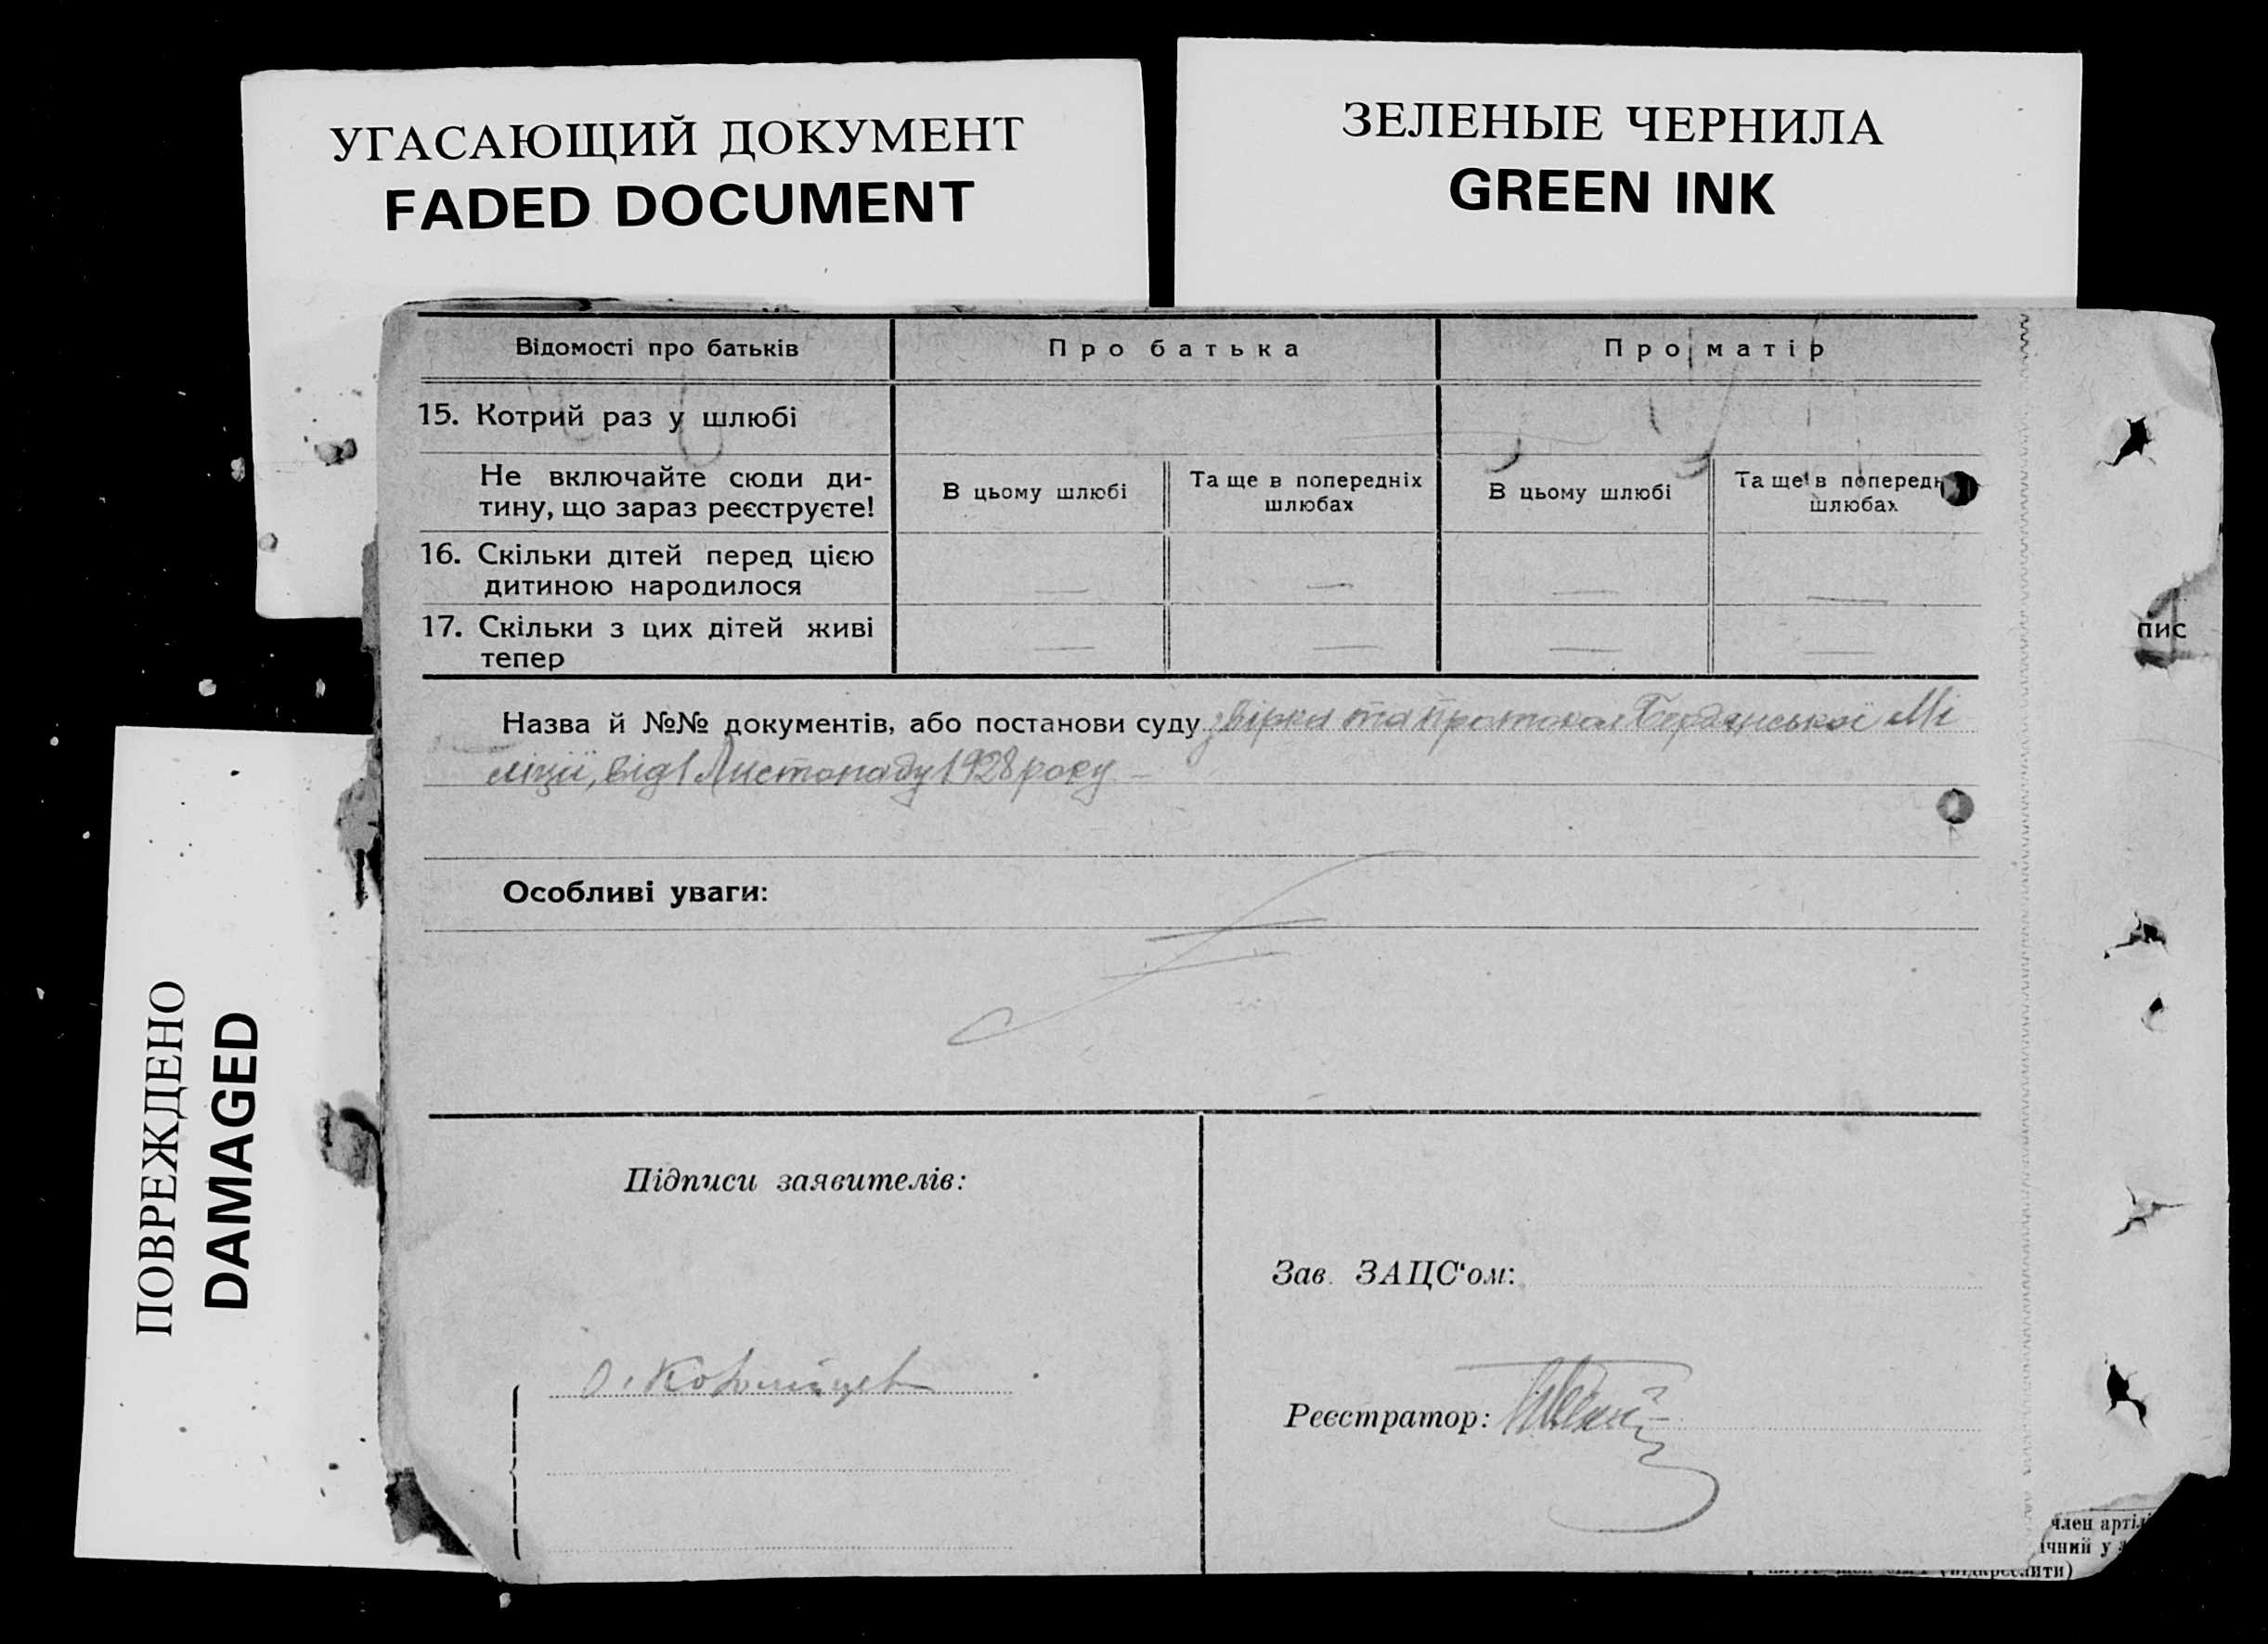 УГАСАЮЩИЙ ДОКУМЕНТ
FADED DOCUMENT
ЗЕЛЕНЫЕ ЧЕРНИЛА
GREEN INK
ПОВРЕЖДЕНО
DAMAGED
Відомості про батьків
Про батька
Про матір
15. Котрий раз у шлюбі
Не включайте сюди ди-
тину, що зараз реєструєте!
В цьому шлюбі
Та ще в попередніх
шлюбах
В цьому шлюбі
Та ще в попередн
шлюбах
16. Скільки дітей перед цією
дитиною народилося
— — — —
17. Скільки з цих дітей живі
тепер
— — — —
пис
Назва й №№ документів, або постанови суду звірка та протокол Бердянської Мі
ліції, від 1 Листопаду 1928 року —
Особливі уваги:
Підписи заявителів:
Зав. ЗАЦС‘ом:
О.
Реєстратор:
член артілі
ічний у
(відкреслити)